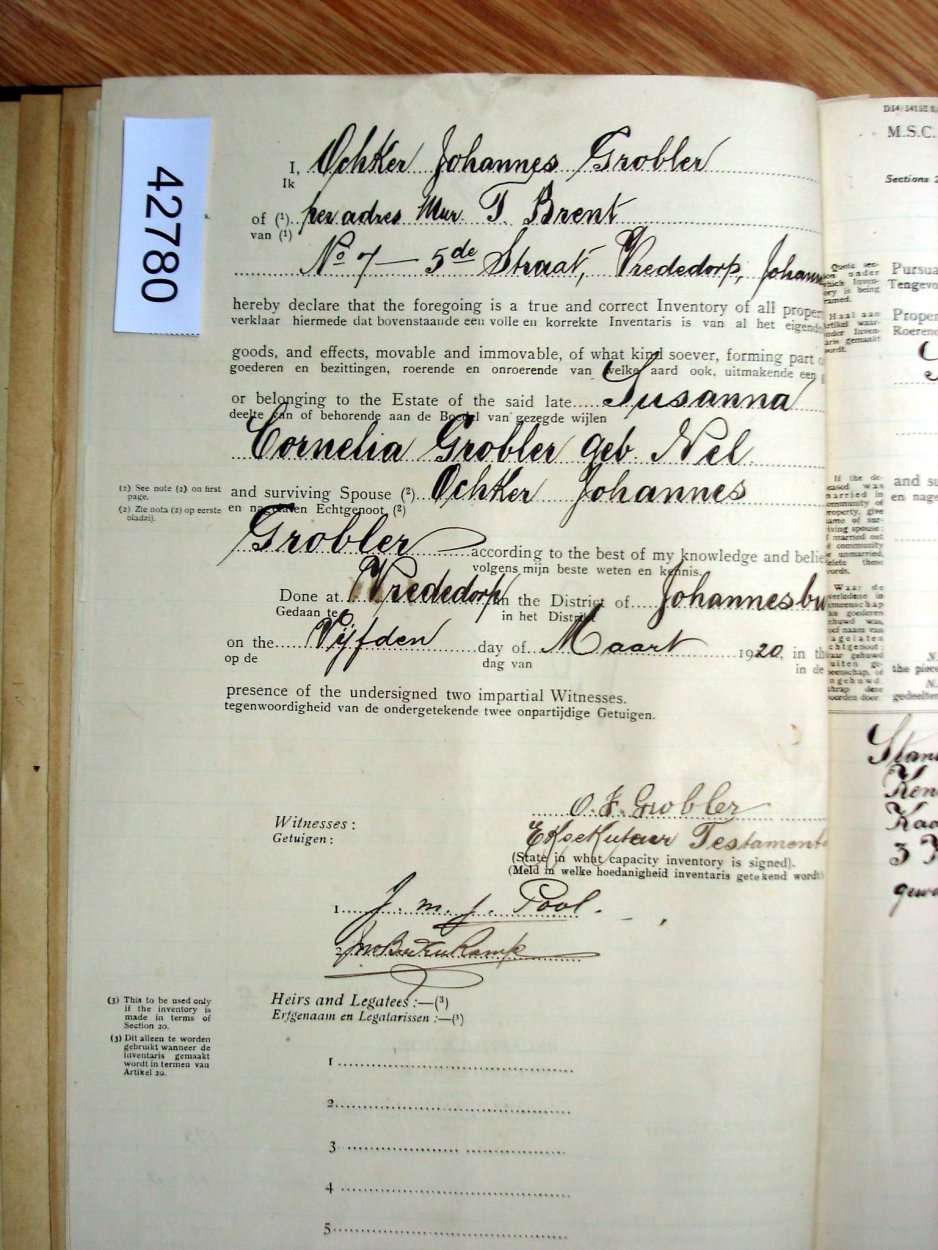 42780
I, Ochker Johannes Grobler
Ik
of (1) per adres Mnr. T Brent
van (1)
No 7 — 5de Straat, Vrededorp, Johann
hereby declare that the foregoing is a true and correct Inventory of all proper
verklaar hiermede dat bovenstaande een volle en korrekte Inventaris is van al het eigend
goods, and effects, movable and immovable, of what kind soever, forming part
goederen en bezittingen, roerende en onroerende van welke aard ook, uitmakende een
or belonging to the Estate of the said late Susanna
deelte van of behorende aan de Boedel van gezegde wijlen
Cornelia Grobler geb. Nel
(2) See note (2) on first
page.
(2) Zie nota (2) op eerste
bladzij.
and surviving Spouse (2). Ochker Johannes
en nagelaten Echtgenoot (2)
Grobler according to the best of my knowledge and belie
volgens mijn beste weten en kennis.
Done at Vrededorp in the District of Johannesbu
Gedaan te in het Distrikt
on the Vijfden day of Maart 1920, in th
op de dag van in de
presence of the undersigned two impartial Witnesses.
tegenwoordigheid van de ondergetekende twee onpartijdige Getuigen.
O. J. Grobler
Witnesses:
Getuigen:
Eksekuteur Testament
(State in what capacity inventory is signed).
(Meld in welke hoedanigheid inventaris getekend wordt
1 J. m. j. Pool.
2
Heirs and Legatees:—(3)
Erfgenaam en Legatarissen:—(3)
(3) This to be used only
if the inventory is
made in terms of
Section 20.
(3) Dit alleen te worden
gebruikt wanneer de
inventaris gemaakt
wordt in termen van
Artikel 20.
1
2
3
4
5
M.S.C.
Sections 2
Quote sec-
tion under
which Inven-
ory is being
ramed.
Haal aan
Artikel waar-
onder Inven-
aris gemaakt
wordt.
Pursua
Tengevo
Proper
Roerend
If the de-
ceased was
married in
community of
property, give
name of sur-
viving spouse;
if married out
of community
or unmarried,
delete these
words.
and su
en nage
Waar de
overledene in
gemeenschap
van goederen
gehuwd was,
the piece
gedeelten
Stan
3